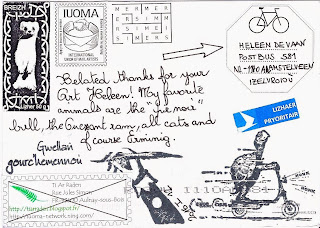 BREIZH
IUOMA
INTERNATIONAL
UNION OF
MAIL ARTISTS
MERMER
ERSIMM
RSIMEI
TIMERS
HELEEN DE VAAN
POSTBUS 581
AMSTELVEEN
IZELVROIOÙ
Belated thanks for your
Art Heleen! My favorite
animals are the
bull, the Ouessant ram, all cats and
of course Erminig.
Gwellañ
gourc'hemennoù
LIZHAER
PRYORITAIR
Ti Ar Raden
Rue Jules Simon
Aulnay-sous-Bois
iuoma-network.ning.com/